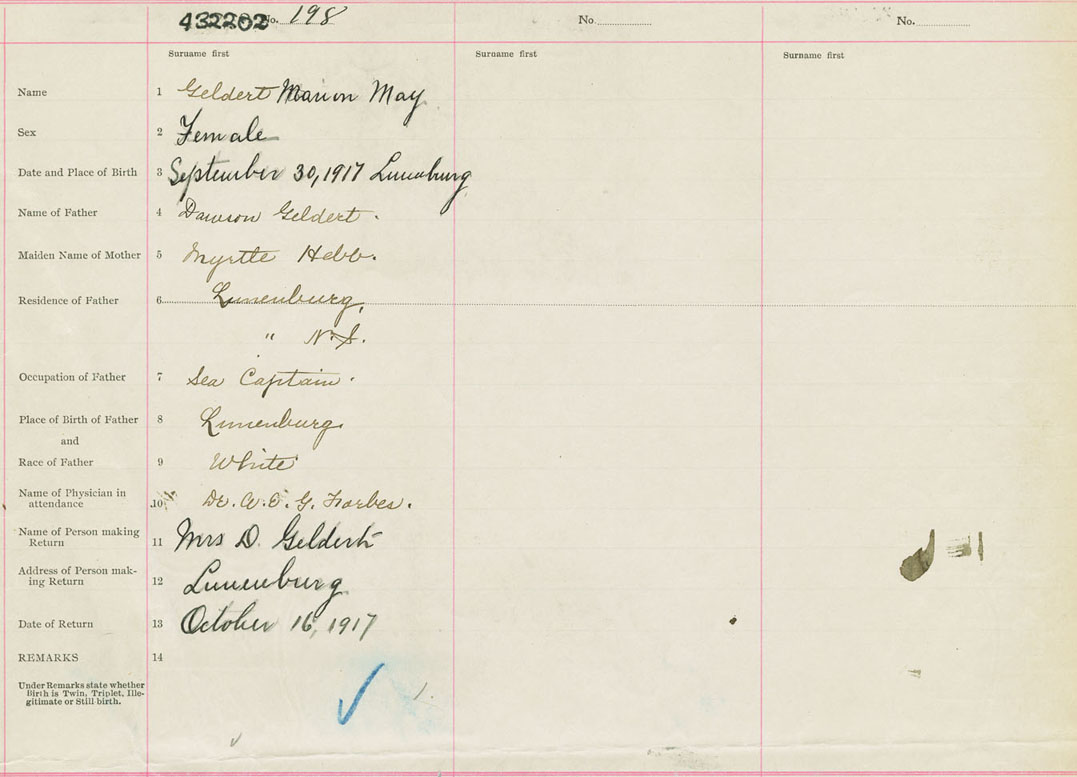 432202 No. 198 No. No.
Surname first Surname first Surname first
Name 1 Geldert Marion May
Sex 2 Female
Date and Place of Birth 3 September 30, 1917 Lunenburg
Name of Father 4 Dawson Geldert.
Maiden Name of Mother 5 Myrtle Hebb.
Residence of Father 6 Lunenburg,
" N.S.
Occupation of Father 7 Sea Captain.
Place of Birth of Father 8 Lunenburg
and
Race of Father 9 White
Name of Physician in
attendance 10 Dr. A.E.G. Forbes.
Name of Person making
Return 11 Mrs D. Geldert
Address of Person mak-
ing Return 12 Lunenburg
Date of Return 13 October 16, 1917
REMARKS 14
Under Remarks state whether
Birth is Twin, Triplet, Ille-
gitimate or Still birth.